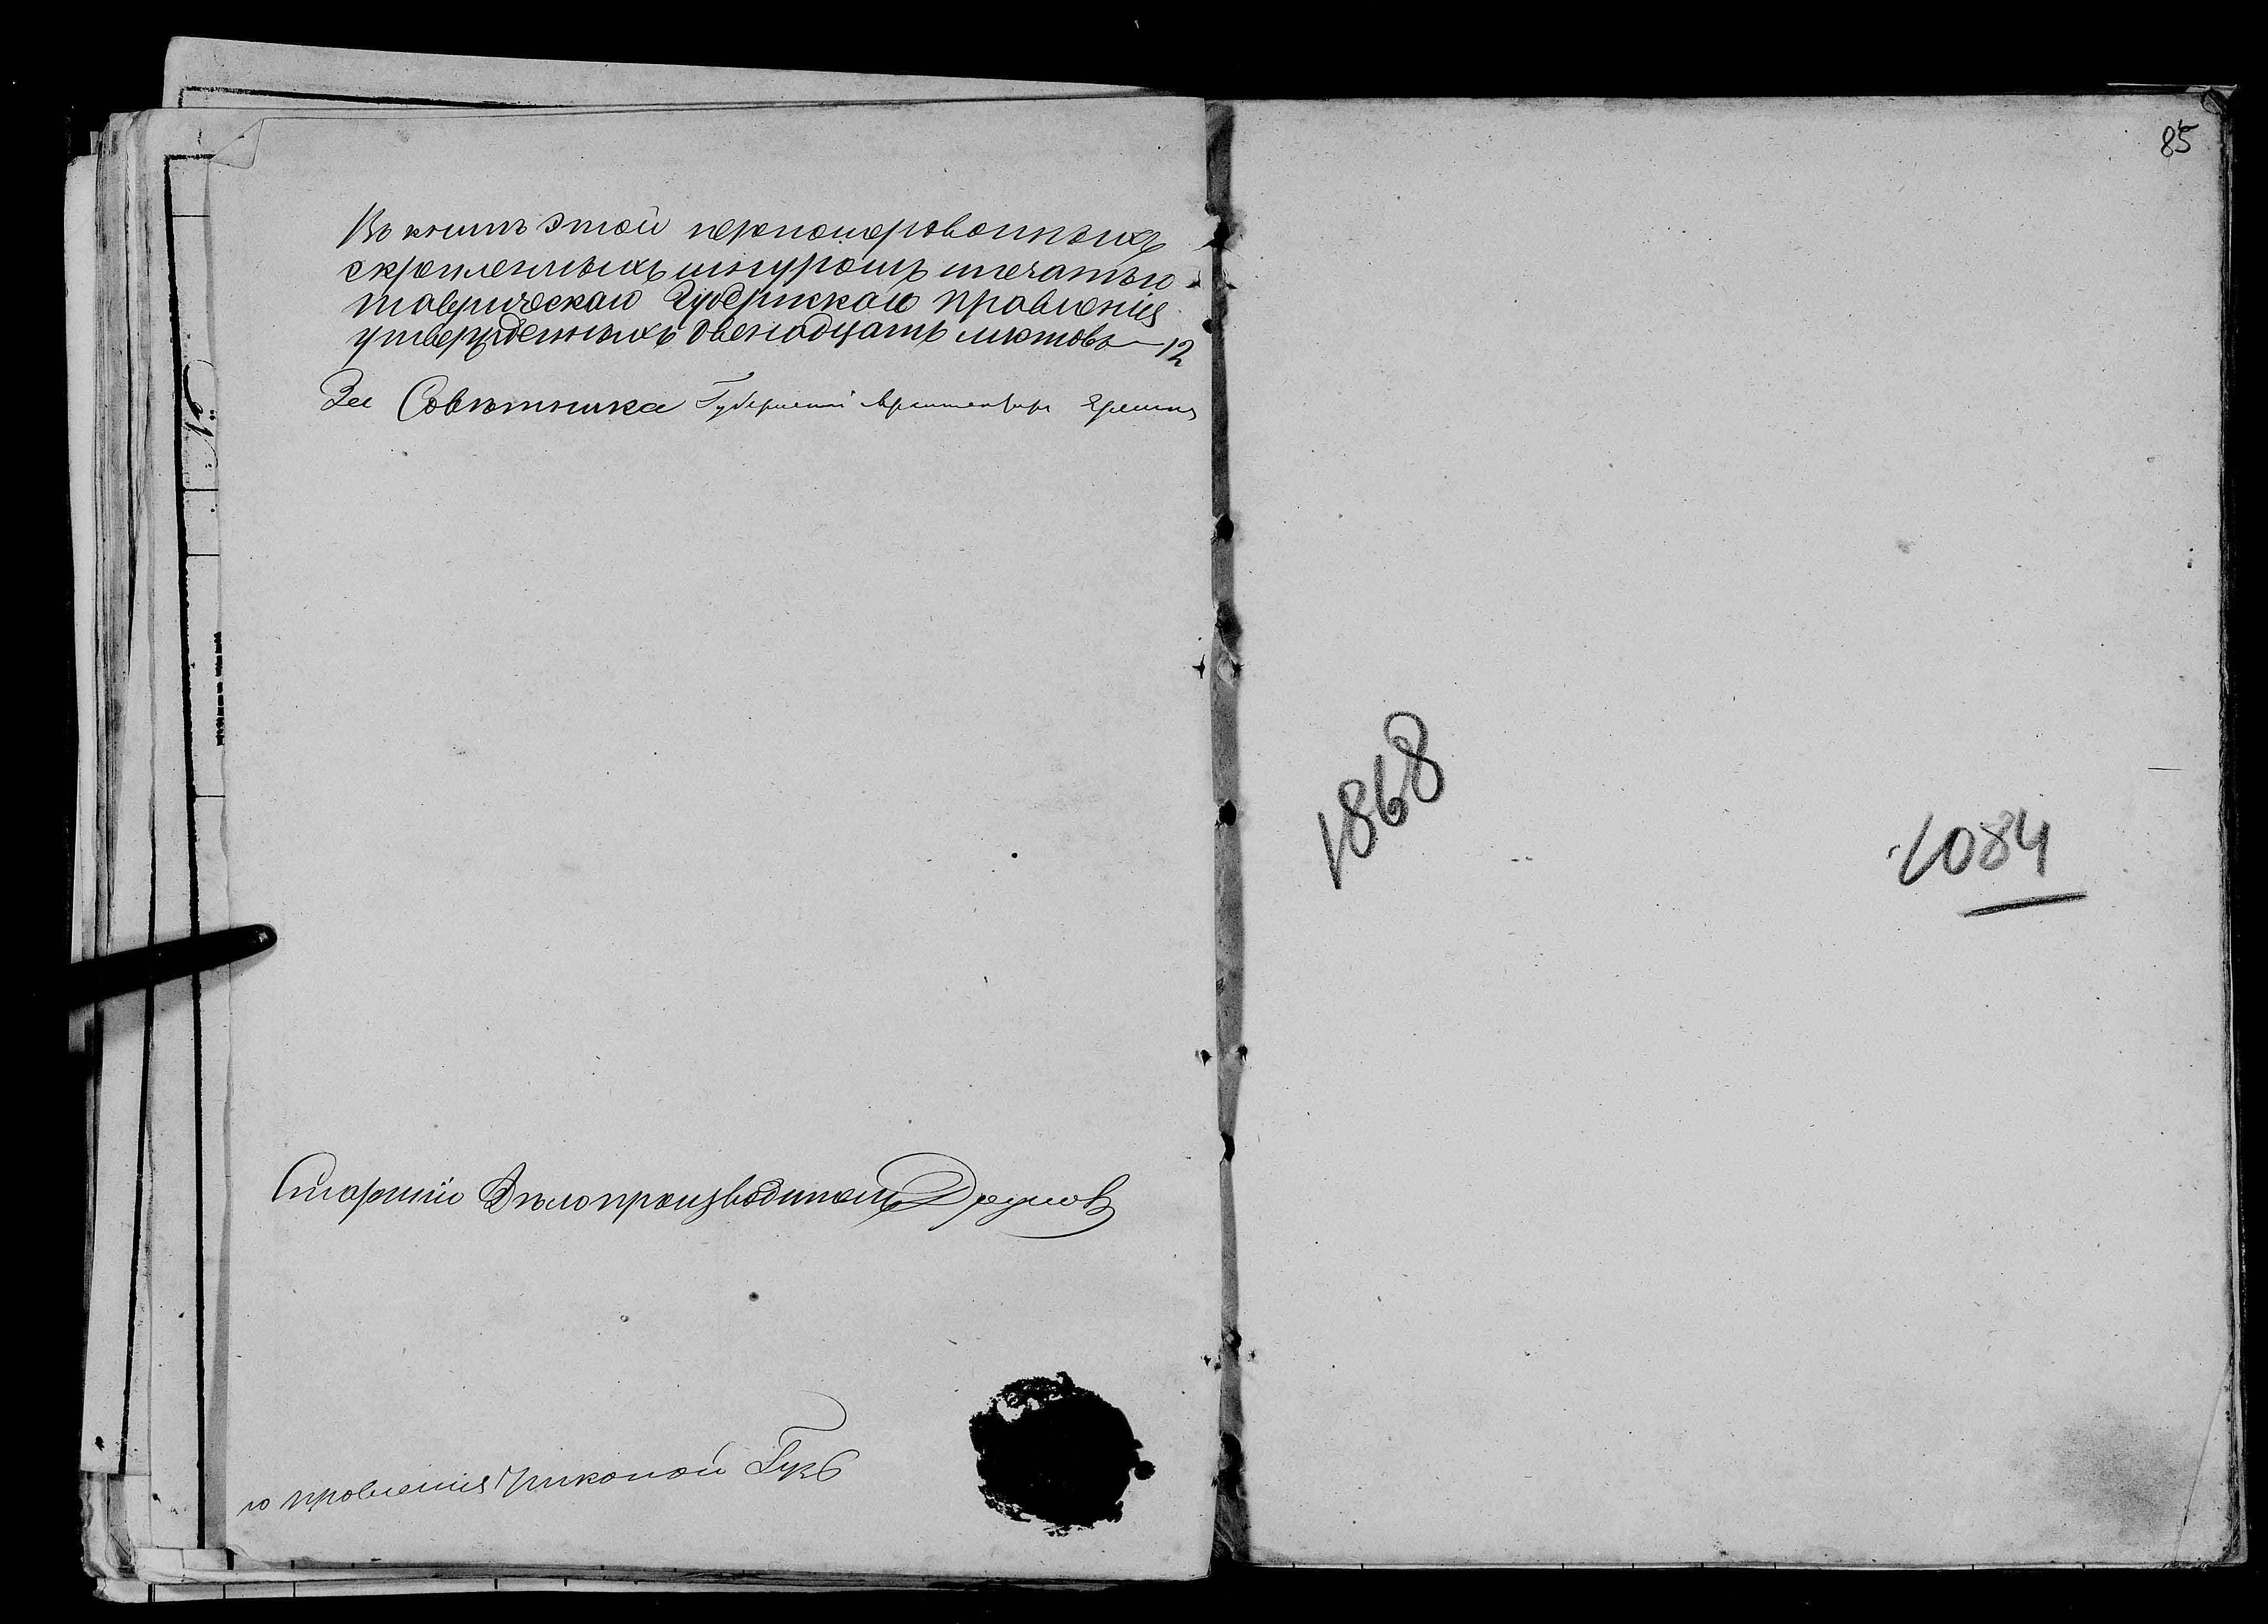 Въ книгѣ этой переномерованныхъ
скрепленныхъ шнуромъ и печатью
таврическаго Губернскаго правленія
утвержденныхъ двенадцать листовъ—12
За Совѣтника Губернскій Архитекторъ
Старшій Дѣлопроизводитель
го правленія
85
1868
1084
№